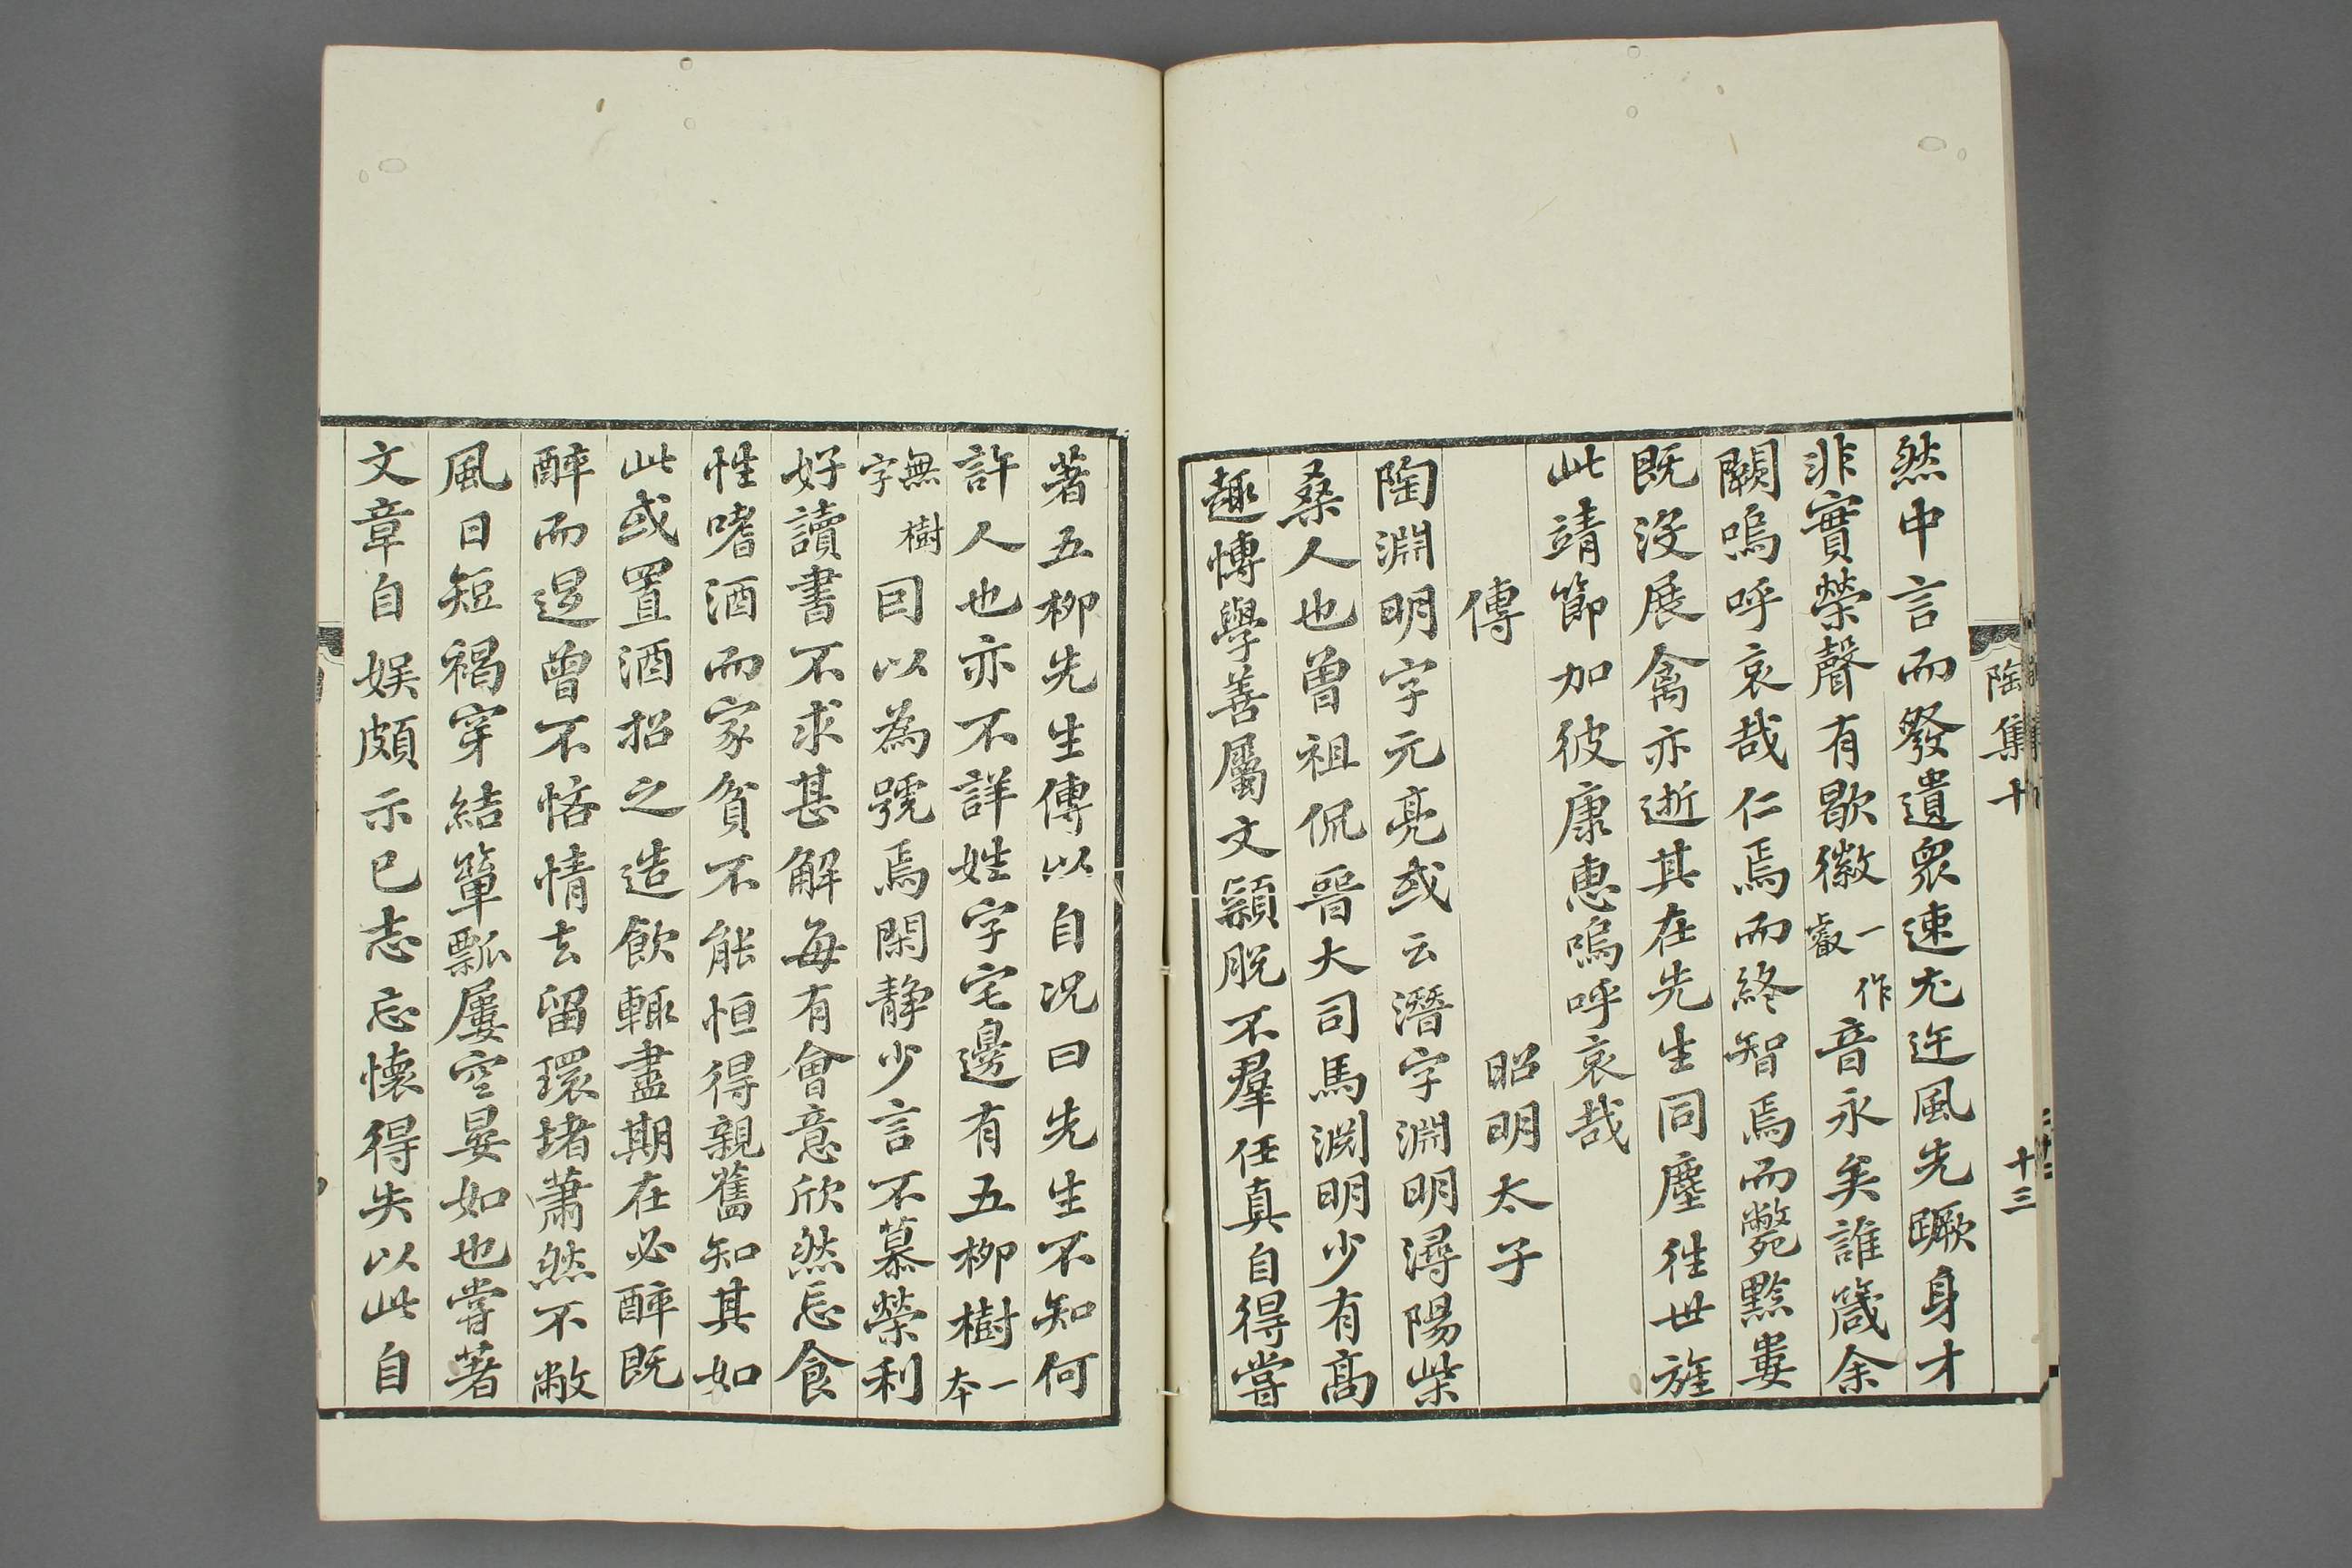 陶集十
十三
然中言而發遺衆速尤迕風先蹶身才
非實榮聲有歇徽一作叡音永矣誰箴余
闕嗚呼哀哉仁焉而終智焉而斃黔婁
既没展禽亦逝其在先生同塵往世旌
此靖節加彼康惠嗚呼哀哉
傳
昭明太子
陶淵明字元亮或云潛字淵明潯陽柴
桑人也曾祖侃晉大司馬淵明少有高
趣博學善屬文穎脱不羣任真自得嘗
著五柳先生傳以自况曰先生不知何
許人也亦不詳姓字宅邊有五柳樹一本
無樹字因以為號焉閑静少言不慕榮利
好讀書不求甚解每有會意欣然忘食
性嗜酒而家貧不能恒得親舊知其如
此或置酒招之造飲輒盡期在必醉既
醉而退曾不恡情去留環堵蕭然不敝
風日短褐穿結簞瓢屢空晏如也嘗著
文章自娱頗示己志忘懷得失以此自